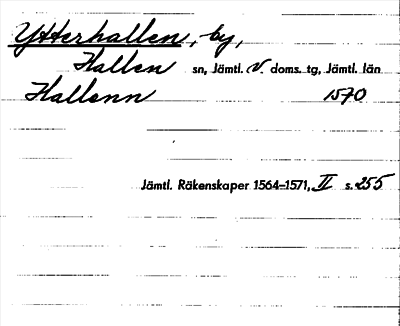 Ytterhallen, by,
Hallen sn, Jämtl. V. doms. tg, Jämtl. län
Hallenn 1570
Jämtl. Räkenskaper 1564–1571, II s. 255